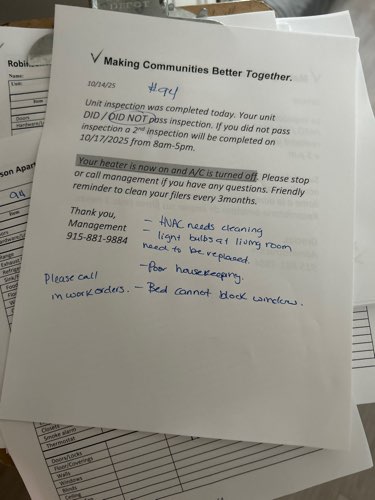 Making Communities Better Together.
10/14/25
#94
Unit inspection was completed today. Your unit
DID / DID NOT pass inspection. If you did not pass
inspection a 2nd inspection will be completed on
10/17/2025 from 8am-5pm.
Your heater is now on and A/C is turned off. Please stop
or call management if you have any questions. Friendly
reminder to clean your filers every 3months.
Thank you,
Management
915-881-9884
- HVAC needs cleaning
- light bulbs at living room
need to be replaced.
- Poor housekeeping.
- Bed cannot block window.
Please call
in work orders.
Name:
Unit:
Item
Doors
94
Closets
Smoke alarm
Thermostat
Doors/Locks
Floor/Coverings
Walls
Windows
Blinds
Ceiling